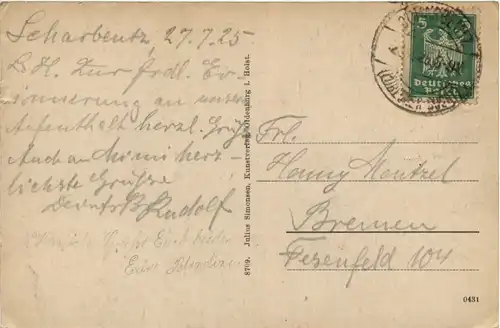 Scharbeutz, 27.7.25
L. H. Zur frdl. Er-
innerung an unsern
Aufenthalt herzl. Grüße
Auch an Mimi herz-
lichste Grüße
Rudolf
8709. Julius Simonsen, Kunstverlag, Oldenburg i. Holst.
5
Deutsches
Frl.
Henny Mentzel
Bremen
Fesenfeld 104
0431